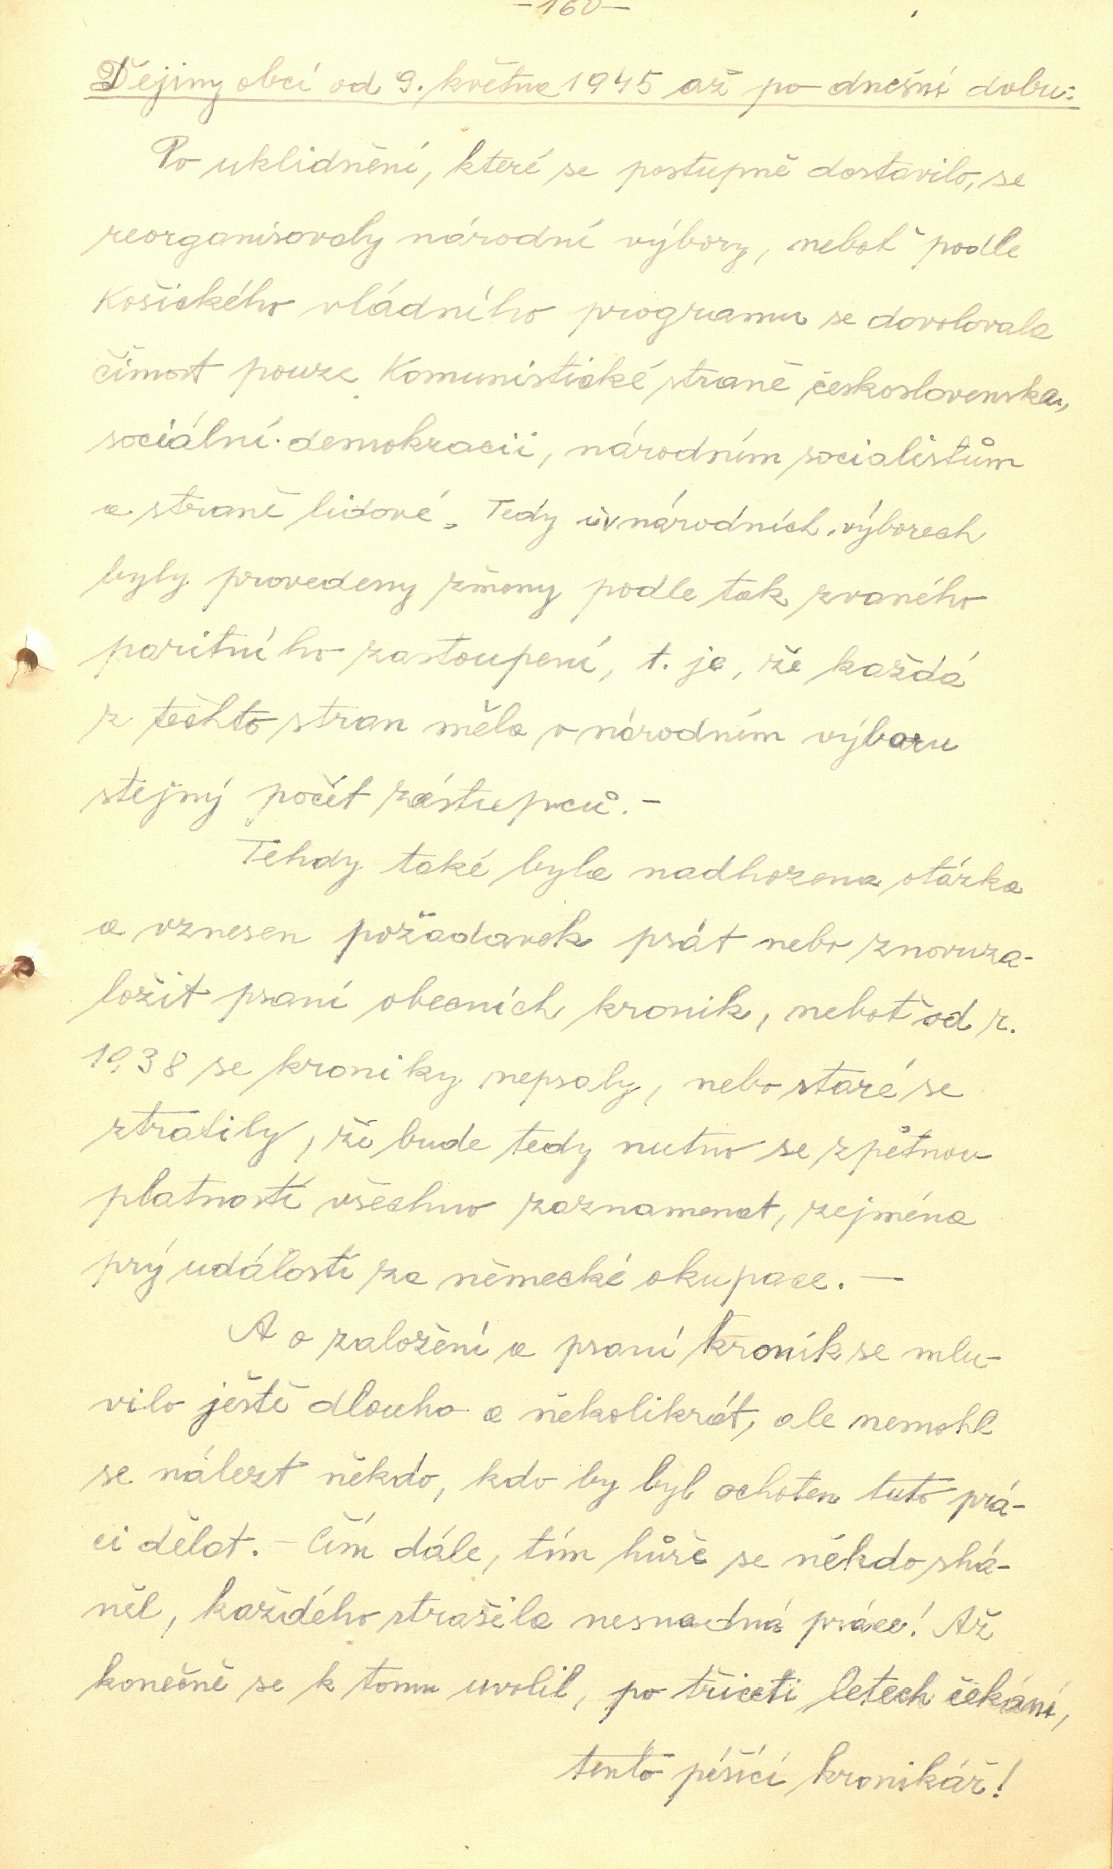 -160-
Dějiny obcí od 9. května 1945 až po dnešní dobu:
Po uklidnění, které se postupně dostavilo, se
reorganisovaly národní výbory, neboť podle
Košického vládního programu se dovolovala
činost pouze Komunistické straně československa,
sociální demokracii, národním socialistům
a straně lidové. Tedy i v národních výborech
byly provedeny změny podle tak zvaného
paritního zastoupení, t. je, že každá
z těchto stran měla v národním výboru
stejný počet zástupců. -
Tehdy také byla nadhozena otázka
a vznesen požadavek psát nebo znovuza-
ložit psaní obecních kronik, neboť od r.
1938 se kroniky nepsaly, nebo staré se
ztratily, že bude tedy nutno se zpětnou
platností všechno zaznamenat, zejména
prý události za německé okupace. -
A o založení a psaní kronik se mlu-
vilo ještě dlouho a několikrát, ale nemohl
se nálezt někdo, kdo by byl ochoten tuto prá-
ci dělat. - Čím dále, tím hůře se někdo shá-
něl, každého strašila nesnadná práce! Až
konečně se k tomu uvolil, po třiceti letech čekání,
tento píšící kronikář!